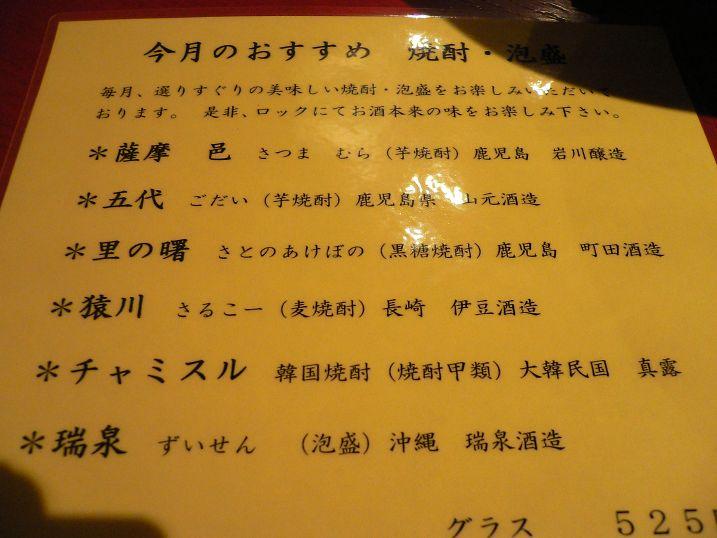 今月のおすすめ　焼酎・泡盛
毎月、選りすぐりの美味しい焼酎・泡盛をお楽しみいただいて
おります。　是非、ロックにてお酒本来の味をお楽しみ下さい。
＊薩摩　邑　さつま　むら（芋焼酎）鹿児島　岩川醸造
＊五代　ごだい（芋焼酎）鹿児島県　山元酒造
＊里の曙　さとのあけぼの（黒糖焼酎）鹿児島　町田酒造
＊猿川　さるこー（麦焼酎）長崎　伊豆酒造
＊チャミスル　韓国焼酎（焼酎甲類）大韓民国　真露
＊瑞泉　ずいせん　（泡盛）沖縄　瑞泉酒造
グラス　５２５